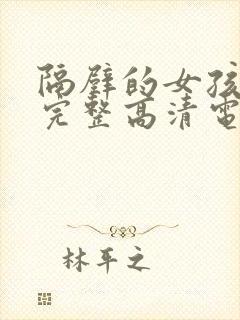 隔壁的女孩
完整高清電
林平之